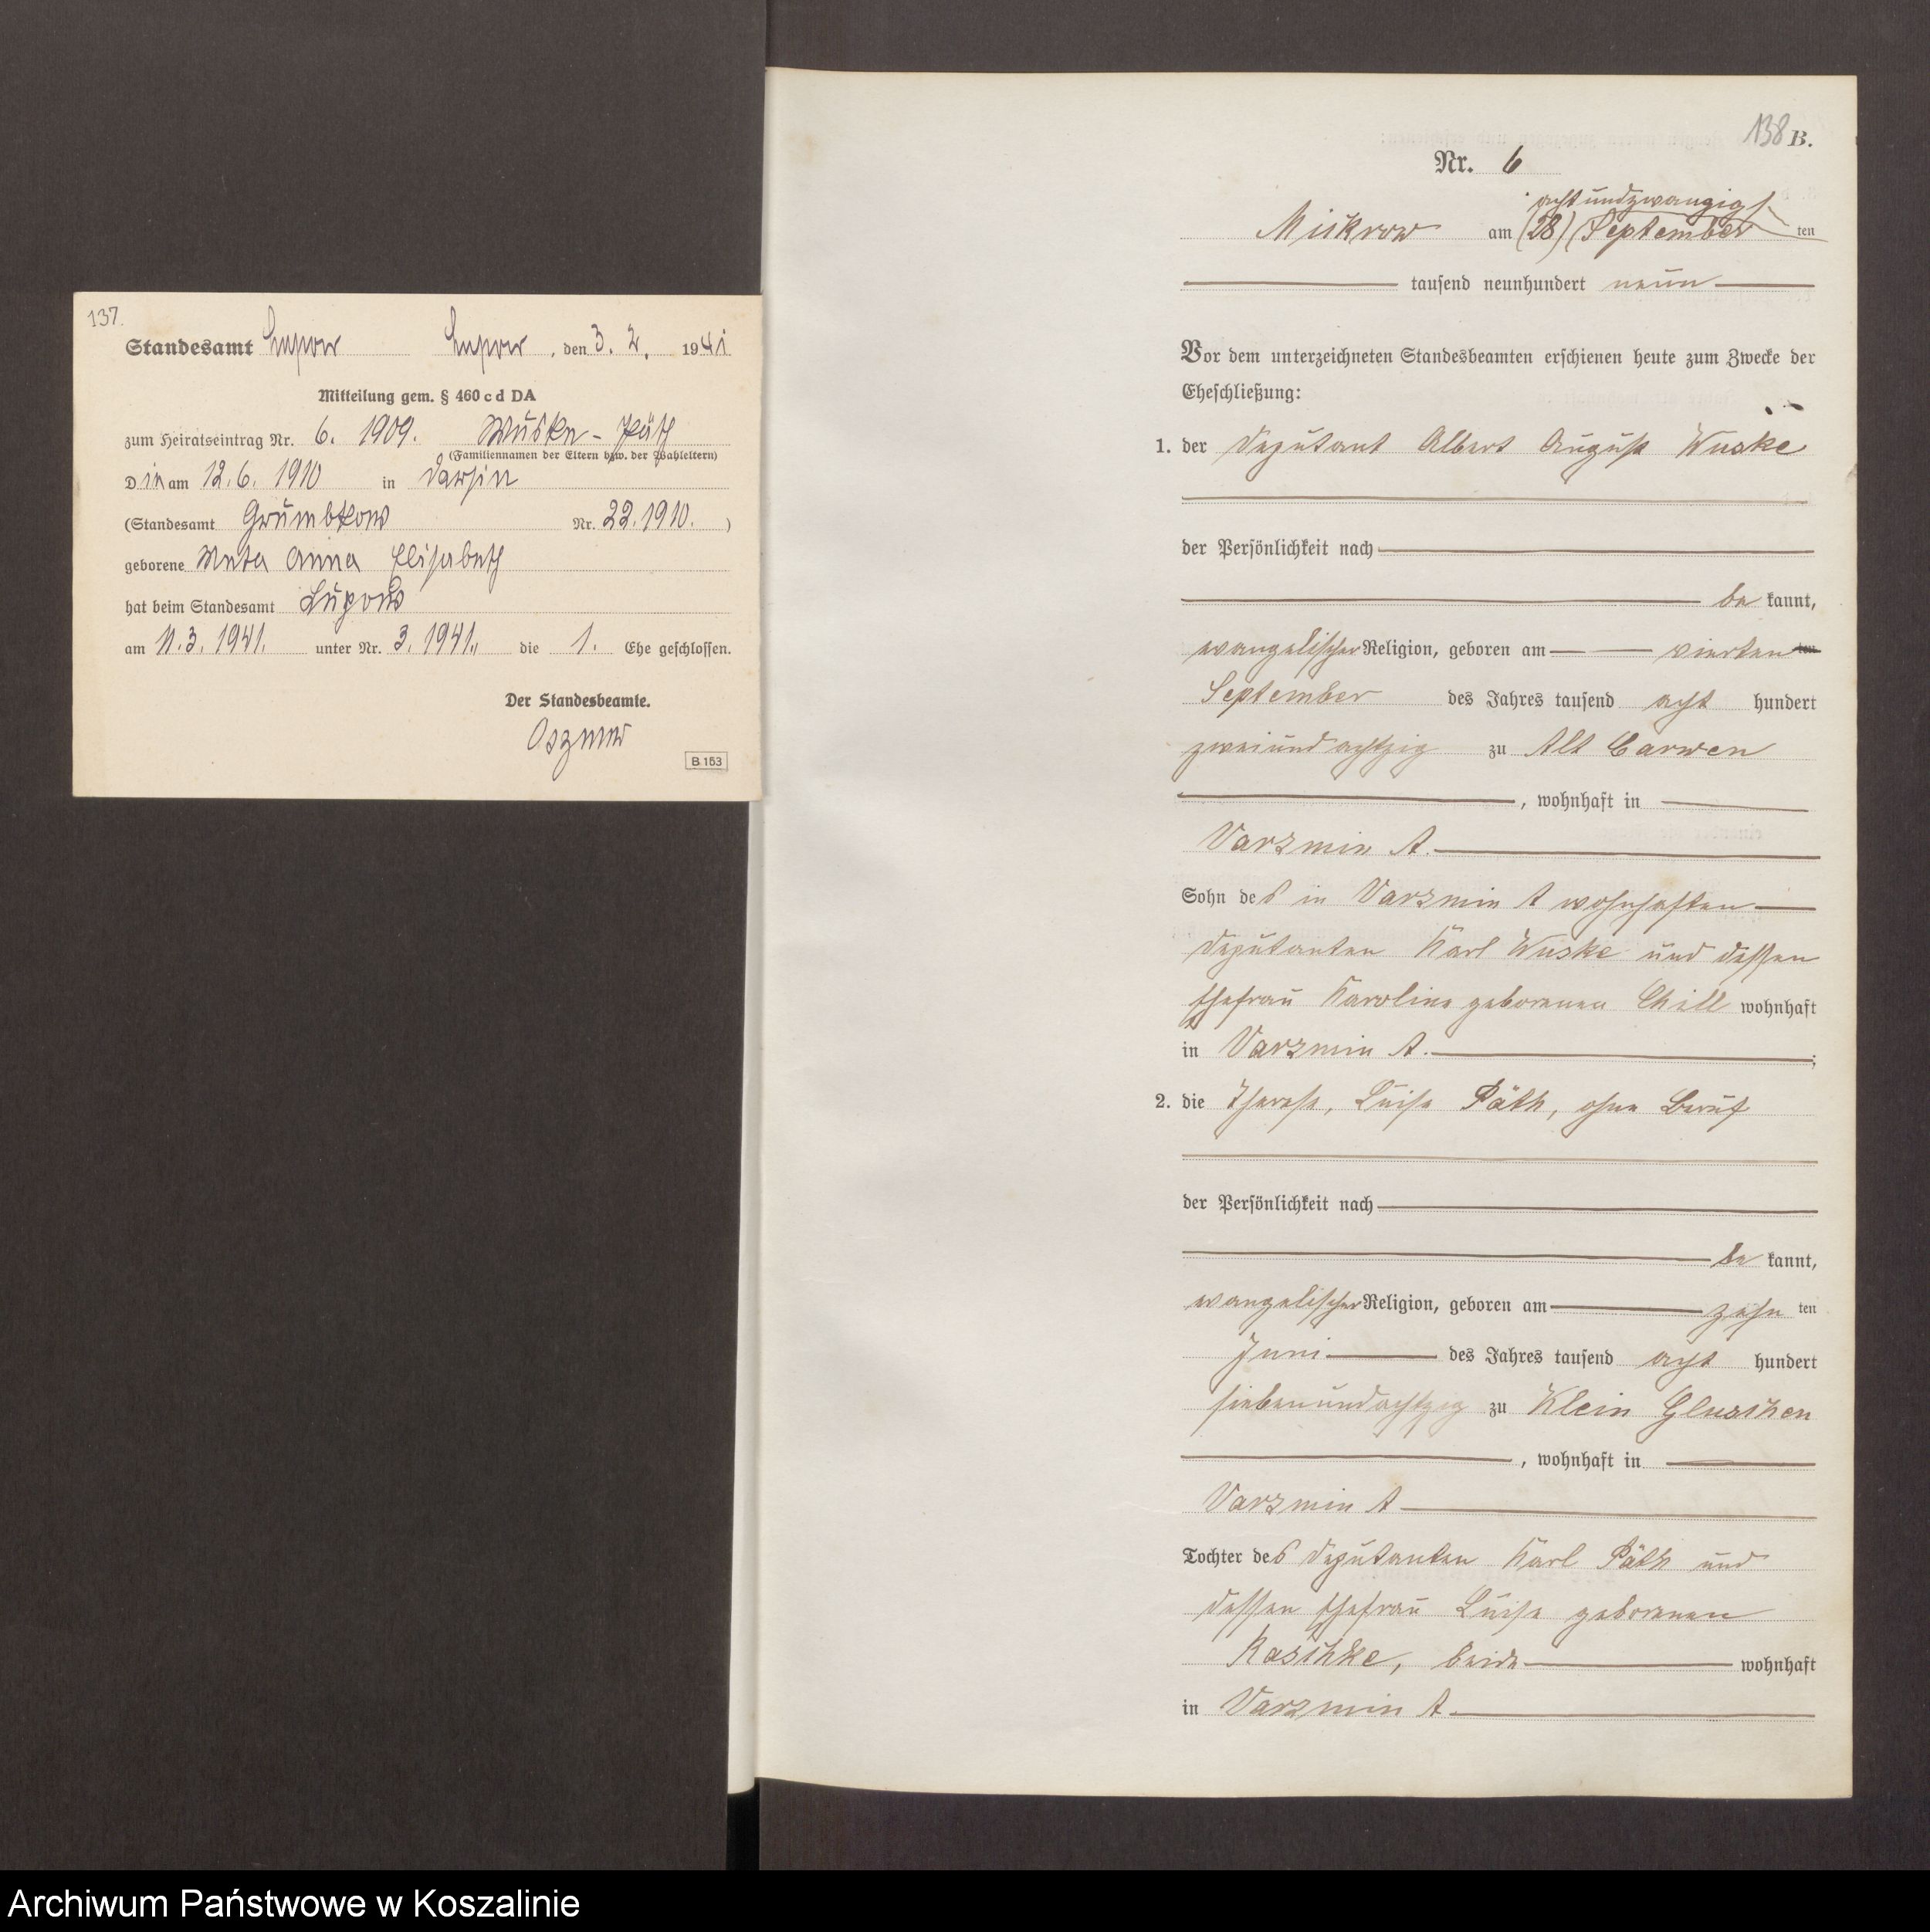 137.
Standesamt Lupow Lupow, den 3. 2. 1941
Mitteilung gem. § 460 c d DA
zum Heiratseintrag Nr. 6. 1909. Wuske - Päth
(Familiennamen der Eltern bzw. der Wahleltern)
Die am 12. 6. 1910 in Darsin
(Standesamt Grumbkow Nr. 22. 1910.)
geborene Meta Anna Elisabeth
hat beim Standesamt Lupow
am 11. 3. 1941. unter Nr. 3. 1941. die 1. Ehe geschlossen.
Der Standesbeamte.
B 153
138 B.
Nr. 6
achtundzwanzigs
Mickrow am (28) September ten
tausend neunhundert neun
Vor dem unterzeichneten Standesbeamten erschienen heute zum Zwecke der
Eheschließung:
1. der Deputant Albert August Wuske
der Persönlichkeit nach
be kannt,
evangelischer Religion, geboren am vierten ten
September des Jahres tausend acht hundert
zweiundachtzig zu Alt Carwen
, wohnhaft in
Varzmin A.
Sohn des in Varzmin A wohnhaften
Deputanten Karl Wuske und dessen
Ehefrau Karoline geborenen Chill wohnhaft
in Varzmin A. ;
2. die Therese, Luise Päth, ohne Beruf
der Persönlichkeit nach
be kannt,
evangelischer Religion, geboren am zehn ten
Juni des Jahres tausend acht hundert
siebenundachtzig zu Klein Gluschen
, wohnhaft in
Varzmin A
Tochter des Deputanten Karl Päth und
dessen Ehefrau Luise geborenen
Raschke, beide wohnhaft
in Varzmin A.
Archiwum Państwowe w Koszalinie